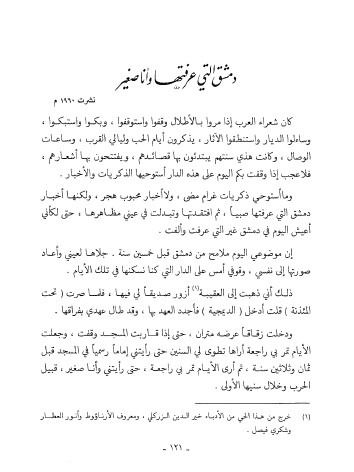 دمشق التي عرفتها وأنا صغير
نشرت ١٩٦٠ م
كان شعراء العرب إذا مروا بالأطلال وقفوا واستوقفوا ، وبكوا واستبكوا ،
وساءلوا الديار واستنطقوا الآثار ، يذكرون أيام الحب وليالي القرب ، وساعات
الوصال ، وكانت هذي سنتهم يبتدئون بها قصائدهم ، ويفتتحون بها أشعارهم ،
فلاعجب إذا وقفت بكم اليوم على هذه الدار أستوحيها الذكريات والأخبار .
وماأستوحي ذكريات غرام مضى ، ولاأخبار محبوب هجر ، ولكنها أخبار
دمشق التي عرفتها صبياً ، ثم افتقدتها وتبدلت في عيني مظاهرها ، حتى لكأني
أعيش اليوم في دمشق غير التي عرفت وألفت .
إن موضوعي اليوم ملامح من دمشق قبل خمسين سنة . جلاها لعيني وأعاد
صورتها إلى نفسي ، وقوفي أمس على الدار التي كنا نسكنها في تلك الأيام .
ذلك أني ذهبت إلى العقيبة (١) أزور صديقاً لي فيها ، فلما صرت ( تحت
المئذنة ) قلت أدخل ( الديمجية ) فأجدد العهد بها ، وقد طال عهدي بفراقها .
ودخلت زقاقاً عرضه متران ، حتى إذا قاربت المسجد وقفت ، وجعلت
الأيام تمر بي راجعة أراها تطوى لي السنين حتى رأيتني إماماً رسمياً في المسجد قبل
ثمان وثلاثين سنة ، ثم أرى الأيام تمر بي راجعة ، حتى رأيتني وأنا صغير ، قبيل
الحرب وخلال سنيها الأولى .
(١) خرج من هذا الحي من الأدباء خير الدين الزركلي ، ومعروف الأرناؤوط وأنور العطار
وشكري فيصل .
- ١٢١ -